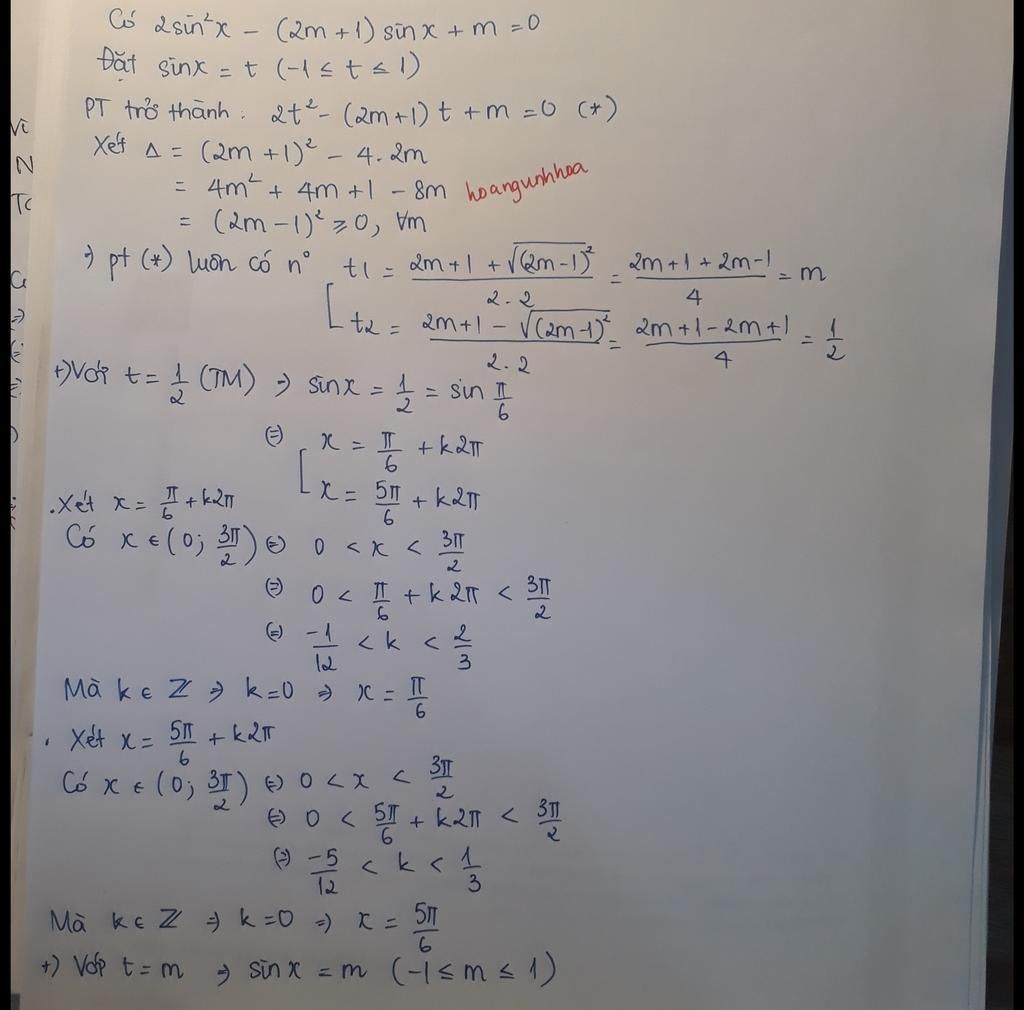 Có 2sin²x - (2m+1) sinx + m = 0
Đặt sinx = t (-1 ≤ t ≤ 1)
PT trở thành: 2t² - (2m+1)t + m = 0 (*)
Xét Δ = (2m+1)² - 4.2m
= 4m² + 4m + 1 - 8m hoangunhhoa
= (2m-1)² ≥ 0, ∀m
⇒ pt (*) luôn có n° [ t1 = (2m+1+√(2m-1)²)/(2.2) = (2m+1+2m-1)/4 = m
t2 = (2m+1-√(2m-1)²)/(2.2) = (2m+1-2m+1)/4 = 1/2
+) Với t = 1/2 (TM) ⇒ sinx = 1/2 = sin π/6
⇔ [ x = π/6 + k2π
x = 5π/6 + k2π
. Xét x = π/6 + k2π
Có x ∈ (0; 3π/2) ⇔ 0 < x < 3π/2
⇔ 0 < π/6 + k2π < 3π/2
⇔ -1/12 < k < 2/3
Mà k ∈ ℤ ⇒ k=0 ⇒ x = π/6
. Xét x = 5π/6 + k2π
Có x ∈ (0; 3π/2) ⇔ 0 < x < 3π/2
⇔ 0 < 5π/6 + k2π < 3π/2
⇔ -5/12 < k < 1/3
Mà k ∈ ℤ ⇒ k=0 ⇒ x = 5π/6
+) Với t = m ⇒ sinx = m (-1 ≤ m ≤ 1)